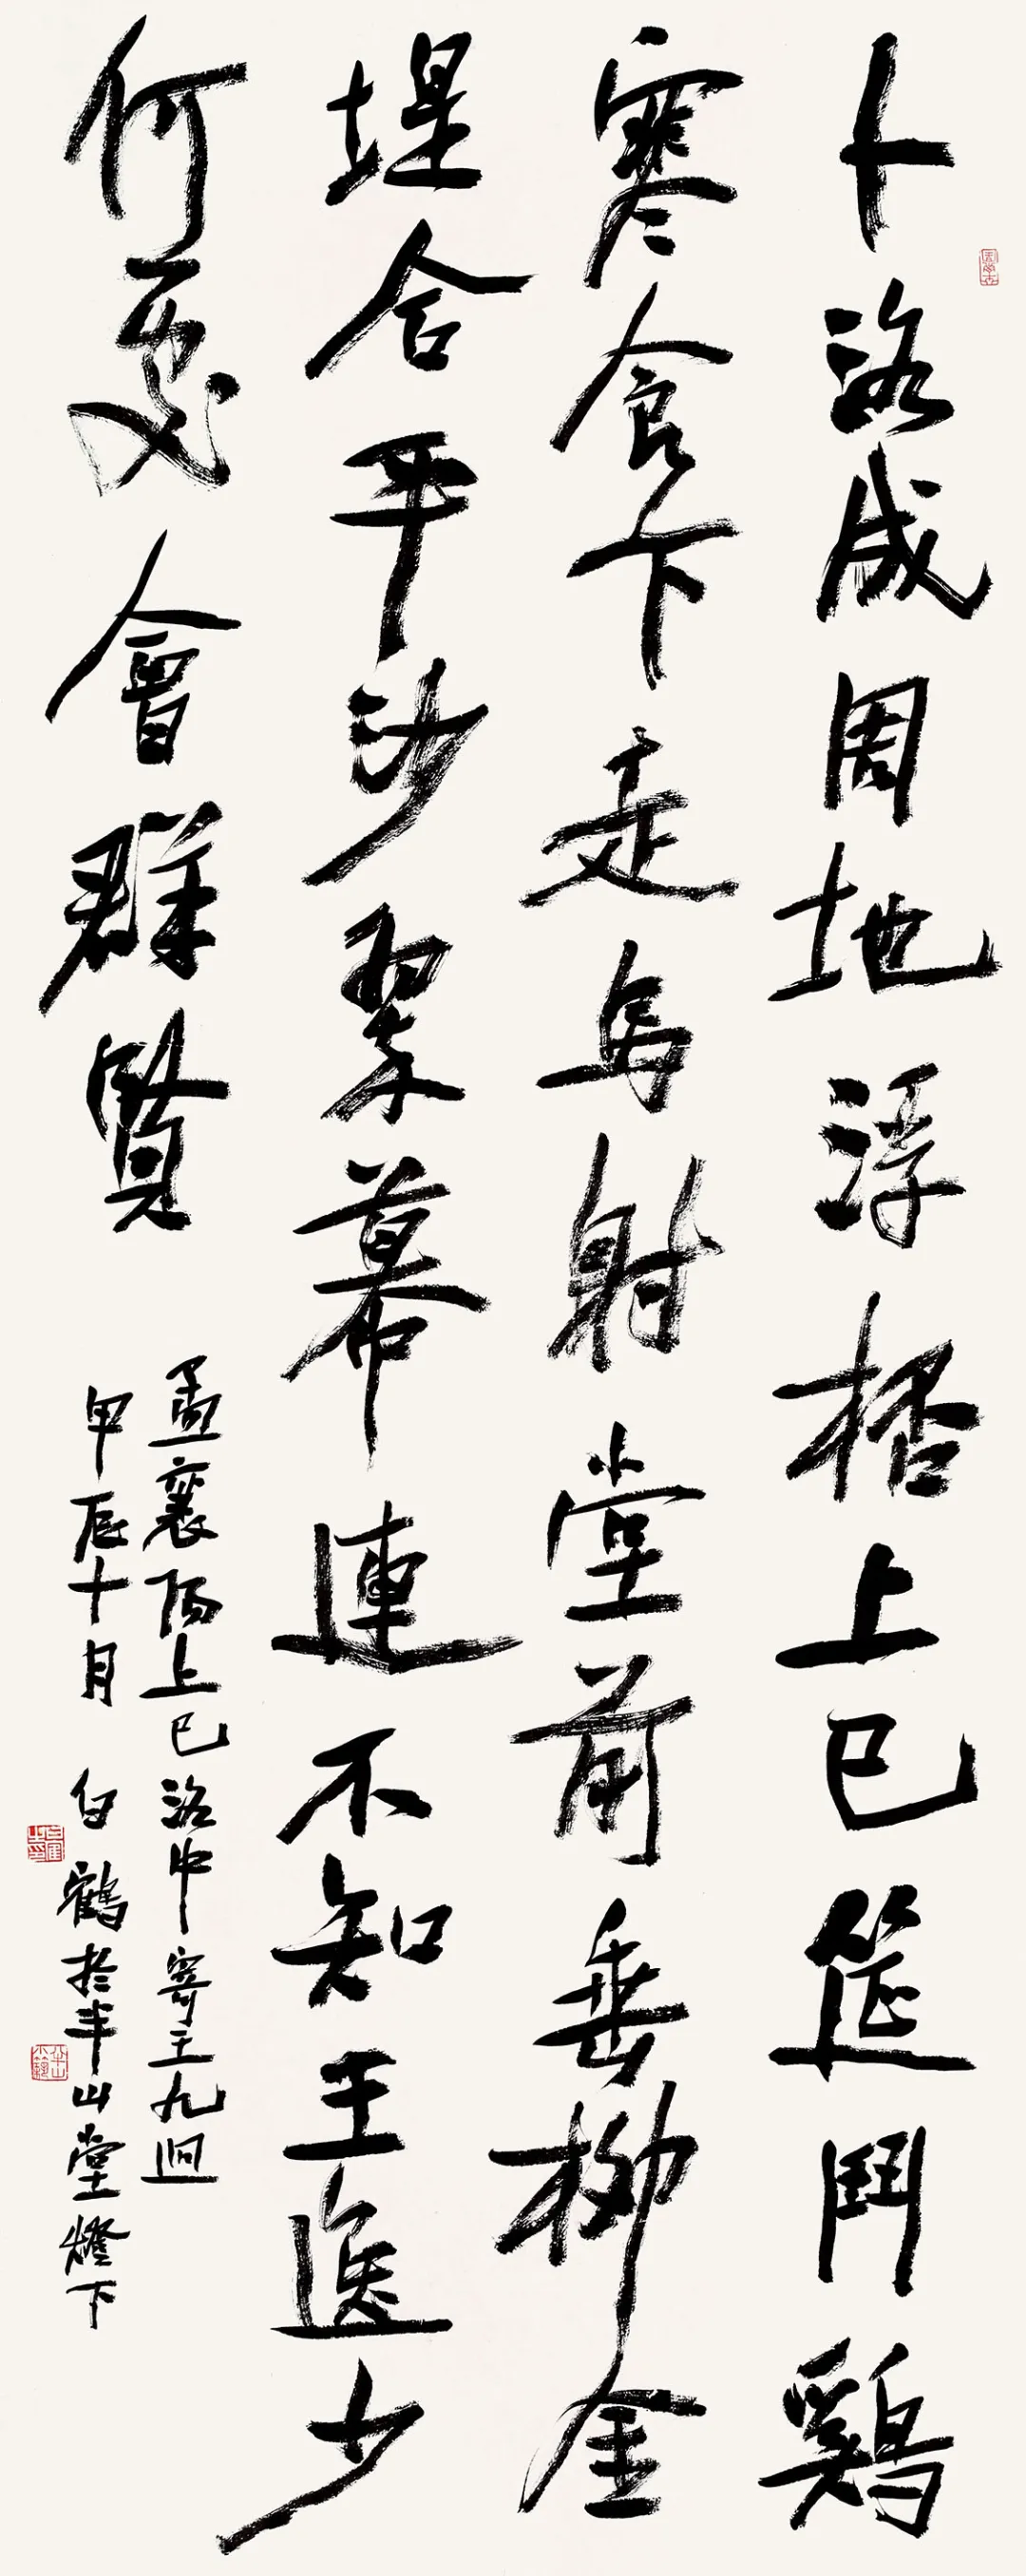 卜洛成周地浮桮上巳筵鬥鷄
寒食下走馬射堂前垂柳金
堤合平沙翠幕連不知王逸少
何處會群賢
孟襄陽上巳洛中寄王九迥
甲辰十月 白鶴於半山堂燈下